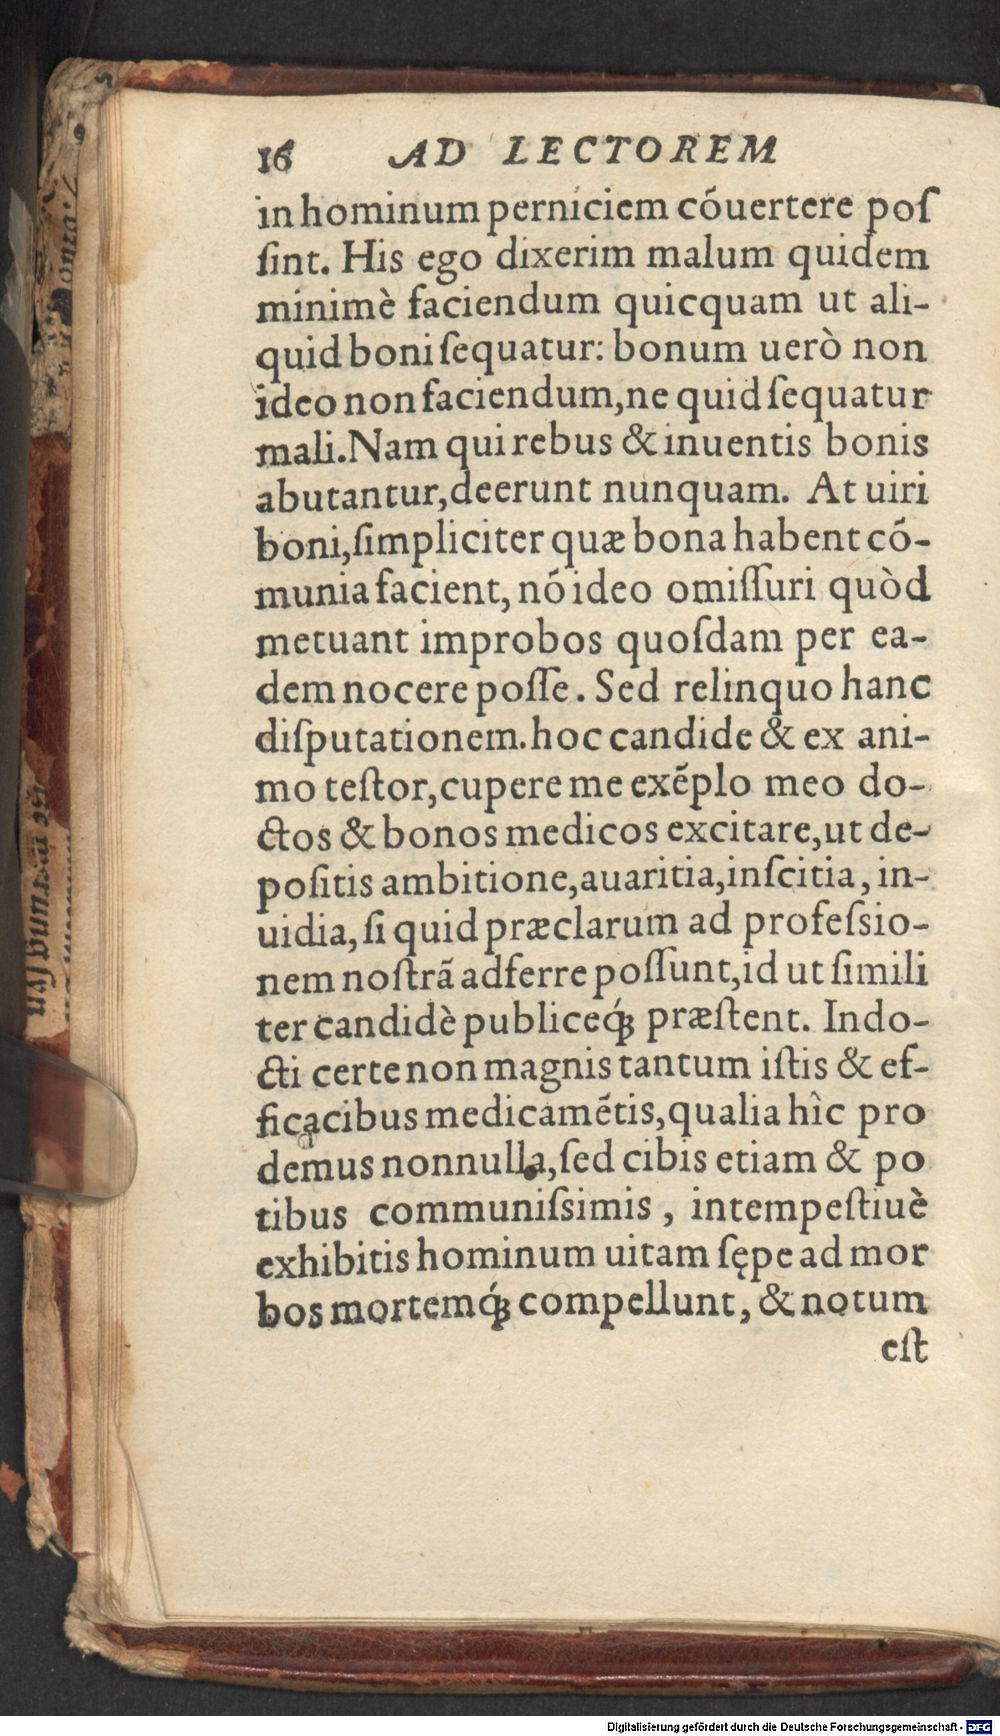 16 AD LECTOREM
in hominum perniciem cóuertere poſ
ſint. His ego dixerim malum quidem
minimè faciendum quicquam ut ali-
quid boni ſequatur: bonum uerò non
ideo non faciendum, ne quid ſequatur
mali. Nam qui rebus & inuentis bonis
abutantur, deerunt nunquam. At uiri
boni, ſimpliciter quæ bona habent có-
munia facient, nó ideo omiſſuri quòd
metuant improbos quoſdam per ea-
dem nocere poſſe. Sed relinquo hanc
diſputationem. hoc candide & ex ani-
mo teſtor, cupere me exẽplo meo do-
ctos & bonos medicos excitare, ut de-
poſitis ambitione, auaritia, inſcitia, in-
uidia, ſi quid præclarum ad profeſsio-
nem noſtrã adferre poſſunt, id ut ſimili
ter candidè publiceq́ꝫ præſtent. Indo-
cti certe non magnis tantum iſtis & ef-
ficacibus medicamẽtis, qualia hìc pro
demus nonnulla, ſed cibis etiam & po
tibus communiſsimis, intempeſtiuè
exhibitis hominum uitam ſępe ad mor
bos mortemq́ꝫ compellunt, & notum
eſt
Digitalisierung gefördert durch die Deutsche Forschungsgemeinschaft - DFG